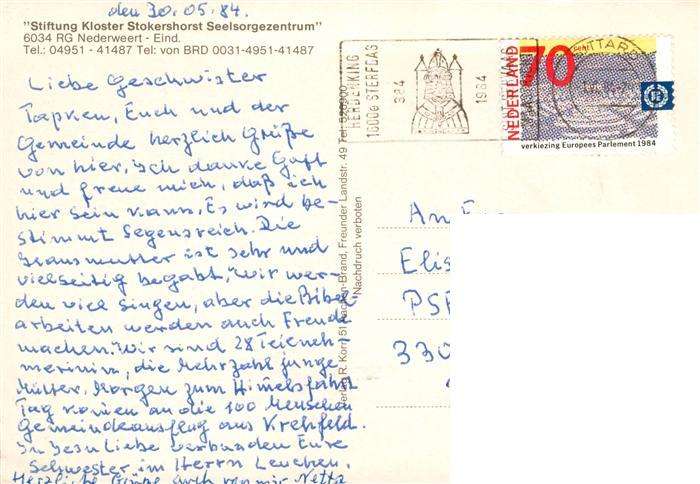 den 30.05.84.
"Stiftung Kloster Stokershorst Seelsorgezentrum"
6034 RG Nederweert - Eind.
Tel.: 04951 - 41487 Tel: von BRD 0031-4951-41487
Liebe Geschwister
Tapken, Euch und der
Gemeinde herzlich Grüße
von hier, ich danke Gott
und freue mich, daß ich
hier sein kann. Es wird be-
stimmt Segensreich. Die
Hausmutter ist sehr und
vielseitig begabt, wir wer-
den viel singen, aber die Bibel-
arbeiten werden auch Freude
machen. Wir sind 28 Teieneh-
merinin, die Mehrzahl junge
Mütter. Morgen zum Himelsfahrt
Tag komen an die 100 Menschen
Gemeindeausflug aus Krehfeld.
In Jesu Liebe verbunden Eure
Schwester im Herrn Lenchen.
Herzliche Grüße auch von mir Netta
Verlag R. Korr, 51 Aachen-Brand, Freunder Landstr. 49 Tel. 520900
Nachdruch verboten
HERDENKING
16000 STERFDAG
384
1984
NEDERLAND
70
cent
SITTARD
verkiezing Europees Parlement 1984
R
An F
Elis
PSF
330